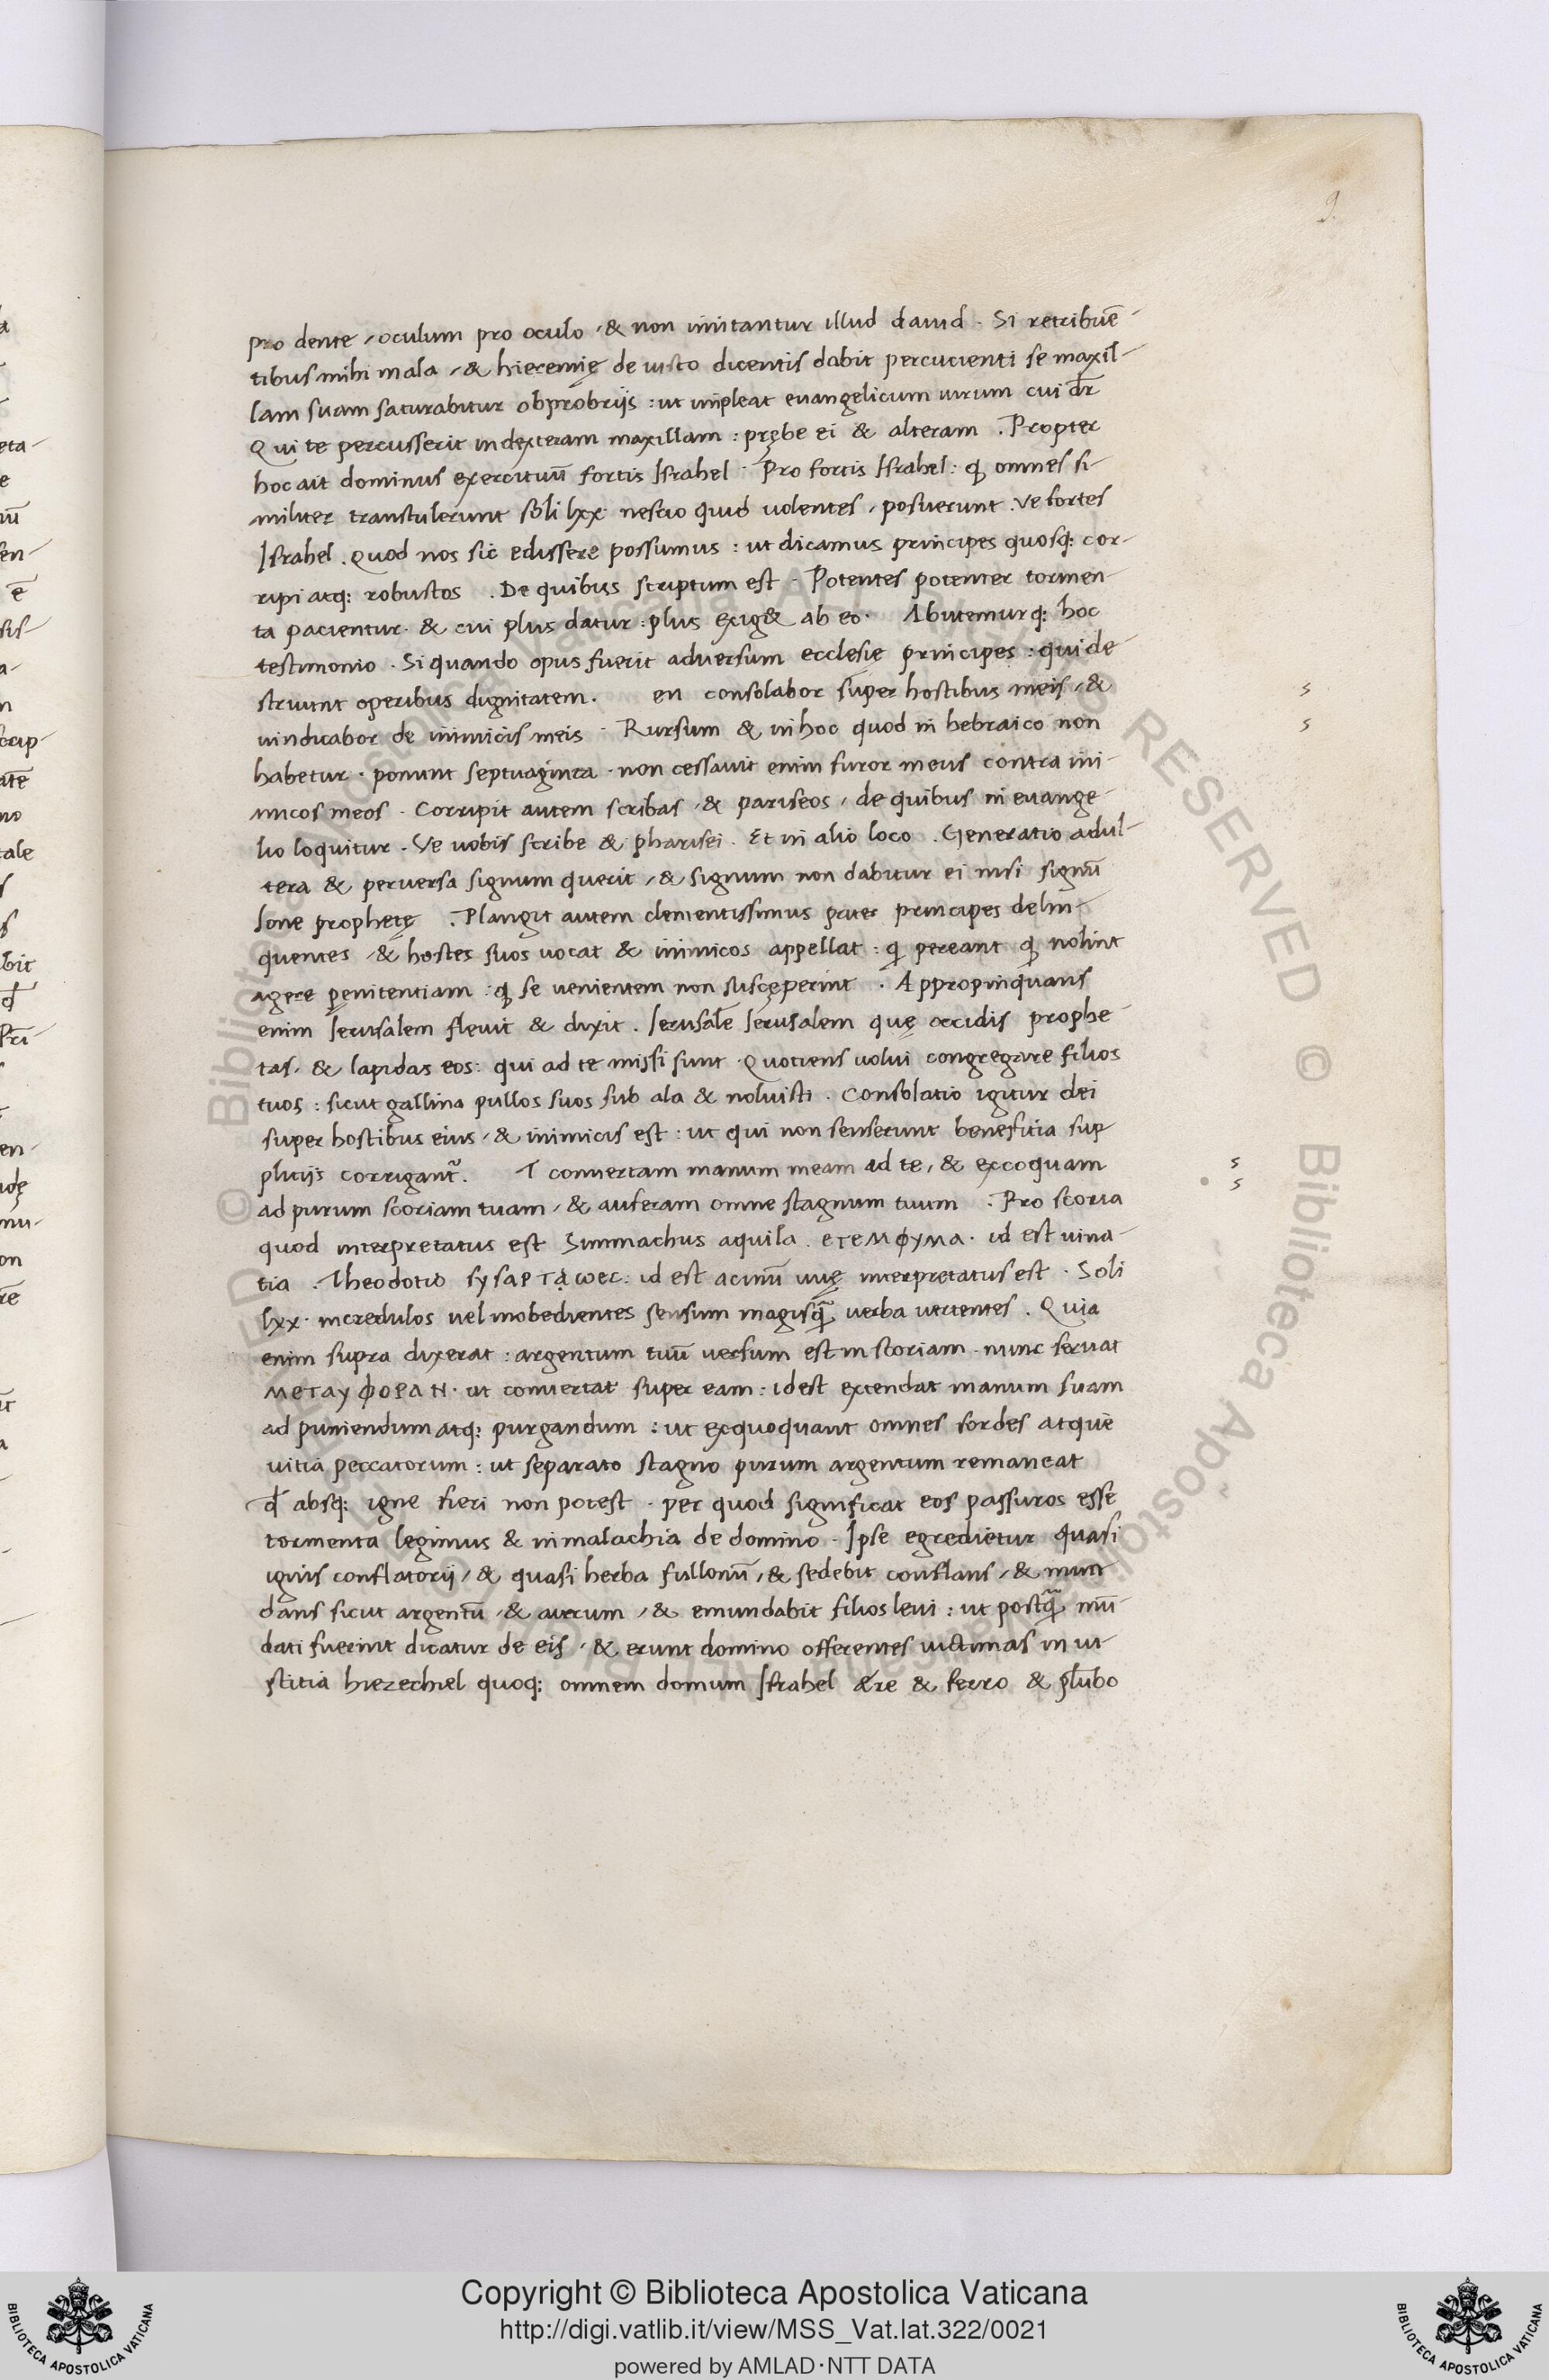 9
pro dente, oculum pro oculo, & non imitantur illud dauid. Si retribuē-
tibus mihi mala, & hieremię de iusto dicentis dabit percucienti se maxil-
lam suam saturabitur obprobrijs: ut impleat euangelicum uirum cui dr̄
Qui te percusserit in dexteram maxillam: prębe ei & alteram. Propter
hoc ait dominus exercituū fortis Israhel. Pro fortis Israhel: q omnes si-
militer transtulerunt soli lxx nescio quid uolentes, posuerunt. Ve fortes
Israhel. Quod nos sic edissere possumus: ut dicamus principes quosq: cor-
ripi atq: robustos. De quibus scriptum est. Potentes potenter tormen-
ta pacientur. & cui plus datur: plus exig& ab eo. Abutemurq: hoc
testimonio. Si quando opus fuerit aduersum ecclesie principes: qui de-
struunt operibus dignitatem. en consolabor super hostibus meis, &
uindicabor de inimicis meis. Rursum & in hoc quod in hebraico non
habetur. ponunt septuaginta. non cessauit enim furor meus contra ini-
micos meos. Corripit autem scribas, & pariseos, de quibus in euange-
lio loquitur. Ve uobis scribe & pharisei. Et in alio loco. Generatio adul-
tera & peruersa signum querit, & signum non dabitur ei nisi signū
Ione prophetę. Plangit autem clementissimus pater principes delin-
quentes, & hostes suos uocat & inimicos appellat: q pereant q nolint
agere penitentiam: q se uenientem non susceperint. Appropinquans
enim Ierusalem fleuit & dixit. Ierusalē Ierusalem quę occidis prophe-
tas, & lapidas eos: qui ad te missi sunt. Quotiens uolui congregare filios
tuos: sicut gallina pullos suos sub ala & noluisti. Consolatio igitur dei
super hostibus eius, & inimicis est: ut qui non senserunt benefitia sup
plicijs corrigant᷑. T conuertam manum meam ad te, & excoquam
ad purum scoriam tuam, & auferam omne stagnum tuum. Pro scoria
quod interpretatus est Simmachus aquila. ΕΓΕΜΦΥΜΑ. id est uina-
tia. Theodotio id est acinū uuę interpretatus est. Soli
lxx. incredulos uel inobedientes sensum magisq̄ uerba uertentes. Quia
enim supra dixerat: argentum tuū uersum est in scoriam. nunc seruat
ΜΕΤΑΥΦΟΡΑΝ. ut conuertat super eam: id est extendat manum suam
ad puniendum atq: purgandum: ut excquoquant omnes sordes atque
uitia peccatorum: ut separato stagno purum argentum remaneat
qđ absq: igne fieri non potest. per quod significat eos passuros esse
tormenta legimus & in malachia de domino. Ipse egredietur quasi
ignis conflatorij, & quasi herba fullonū, & sedebit conflans, & mun
dans sicut argentū, & aurum, & emundabit filios leui: ut postq̄ mū-
dati fuerint dicatur de eis, & erunt domino offerentes uictimas in iu-
stitia hiezechiel quoq: omnem domum Israhel ære & ferro & plūbo
Copyright © Biblioteca Apostolica Vaticana
http://digi.vatlib.it/view/MSS_Vat.lat.322/0021
powered by AMLAD·NTT DATA